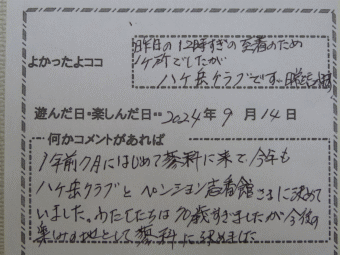 よかったよココ
昨日の12時すぎの到着のため
1ヶ所でしたが
八ヶ岳クラブです
遊んだ日・楽しんだ日‥2024年9月14日
何かコメントがあれば
1年前9月にはじめて蓼科に来て、今年も
八ヶ岳クラブとペンション
さんに決めて
いました。わたしたちは70歳すぎましたが今後の
楽しみの地として蓼科に決めました